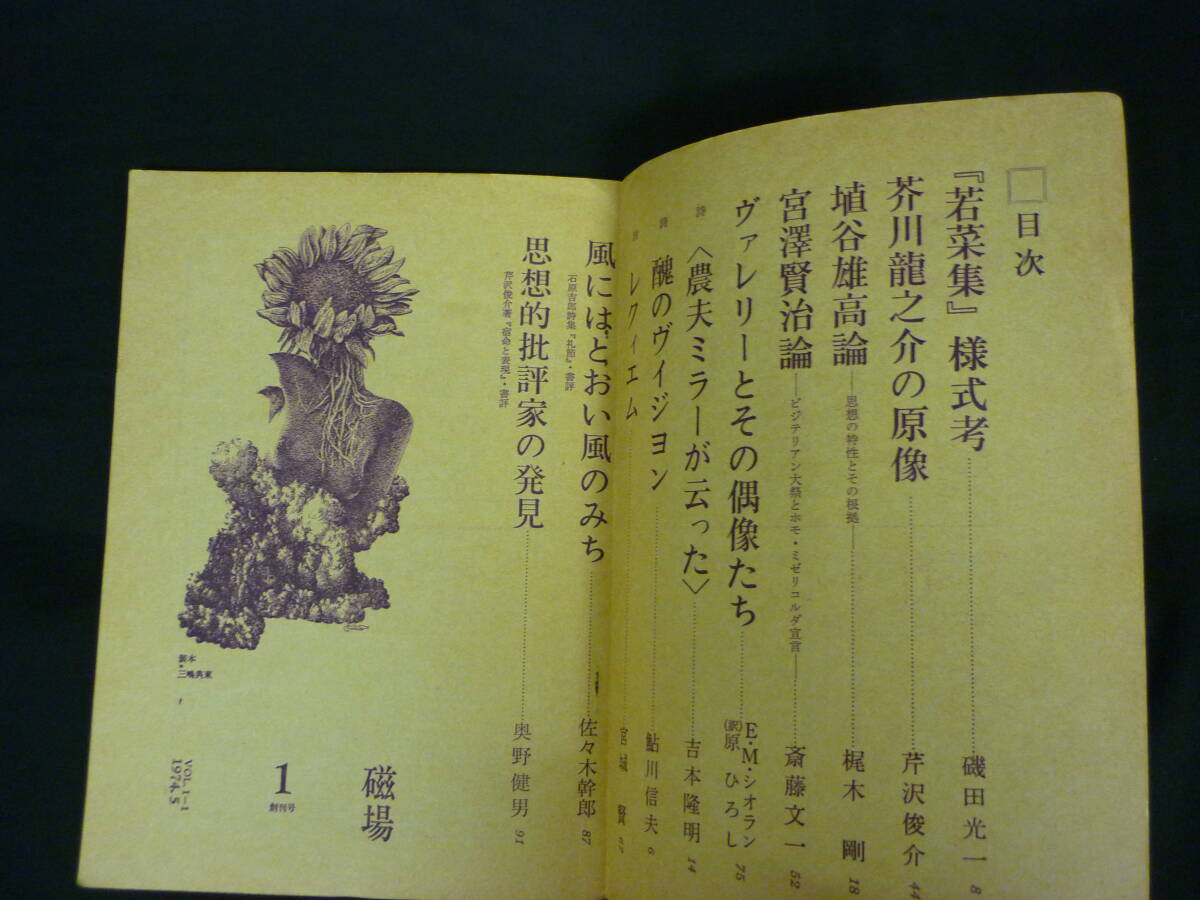 目次
『若菜集』様式考 磯田光一 8
芥川龍之介の原像 芹沢俊介 44
埴谷雄高論 ―思想の特性とその根拠― 梶木 剛 18
宮澤賢治論 ―ビジテリアン大祭とホモ・ミゼリコルダ宣言― 斎藤文一 52
ヴァレリーとその偶像たち E・M・シオラン (訳)原 ひろし 75
詩 〈農夫ミラーが云った〉 吉本隆明 14
詩 醜のヴィジョン 鮎川信夫 6
詩 レクィエム 宮城 賢 67
風にはとおい風のみち 佐々木幹郎 87
石原吉郎詩集『礼節』・書評
思想的批評家の発見 奥野健男 91
芹沢俊介著『宿命と表現』・書評
磁場
1
創刊号
VOL.1-1
1974.5
装本
・三嶋典東